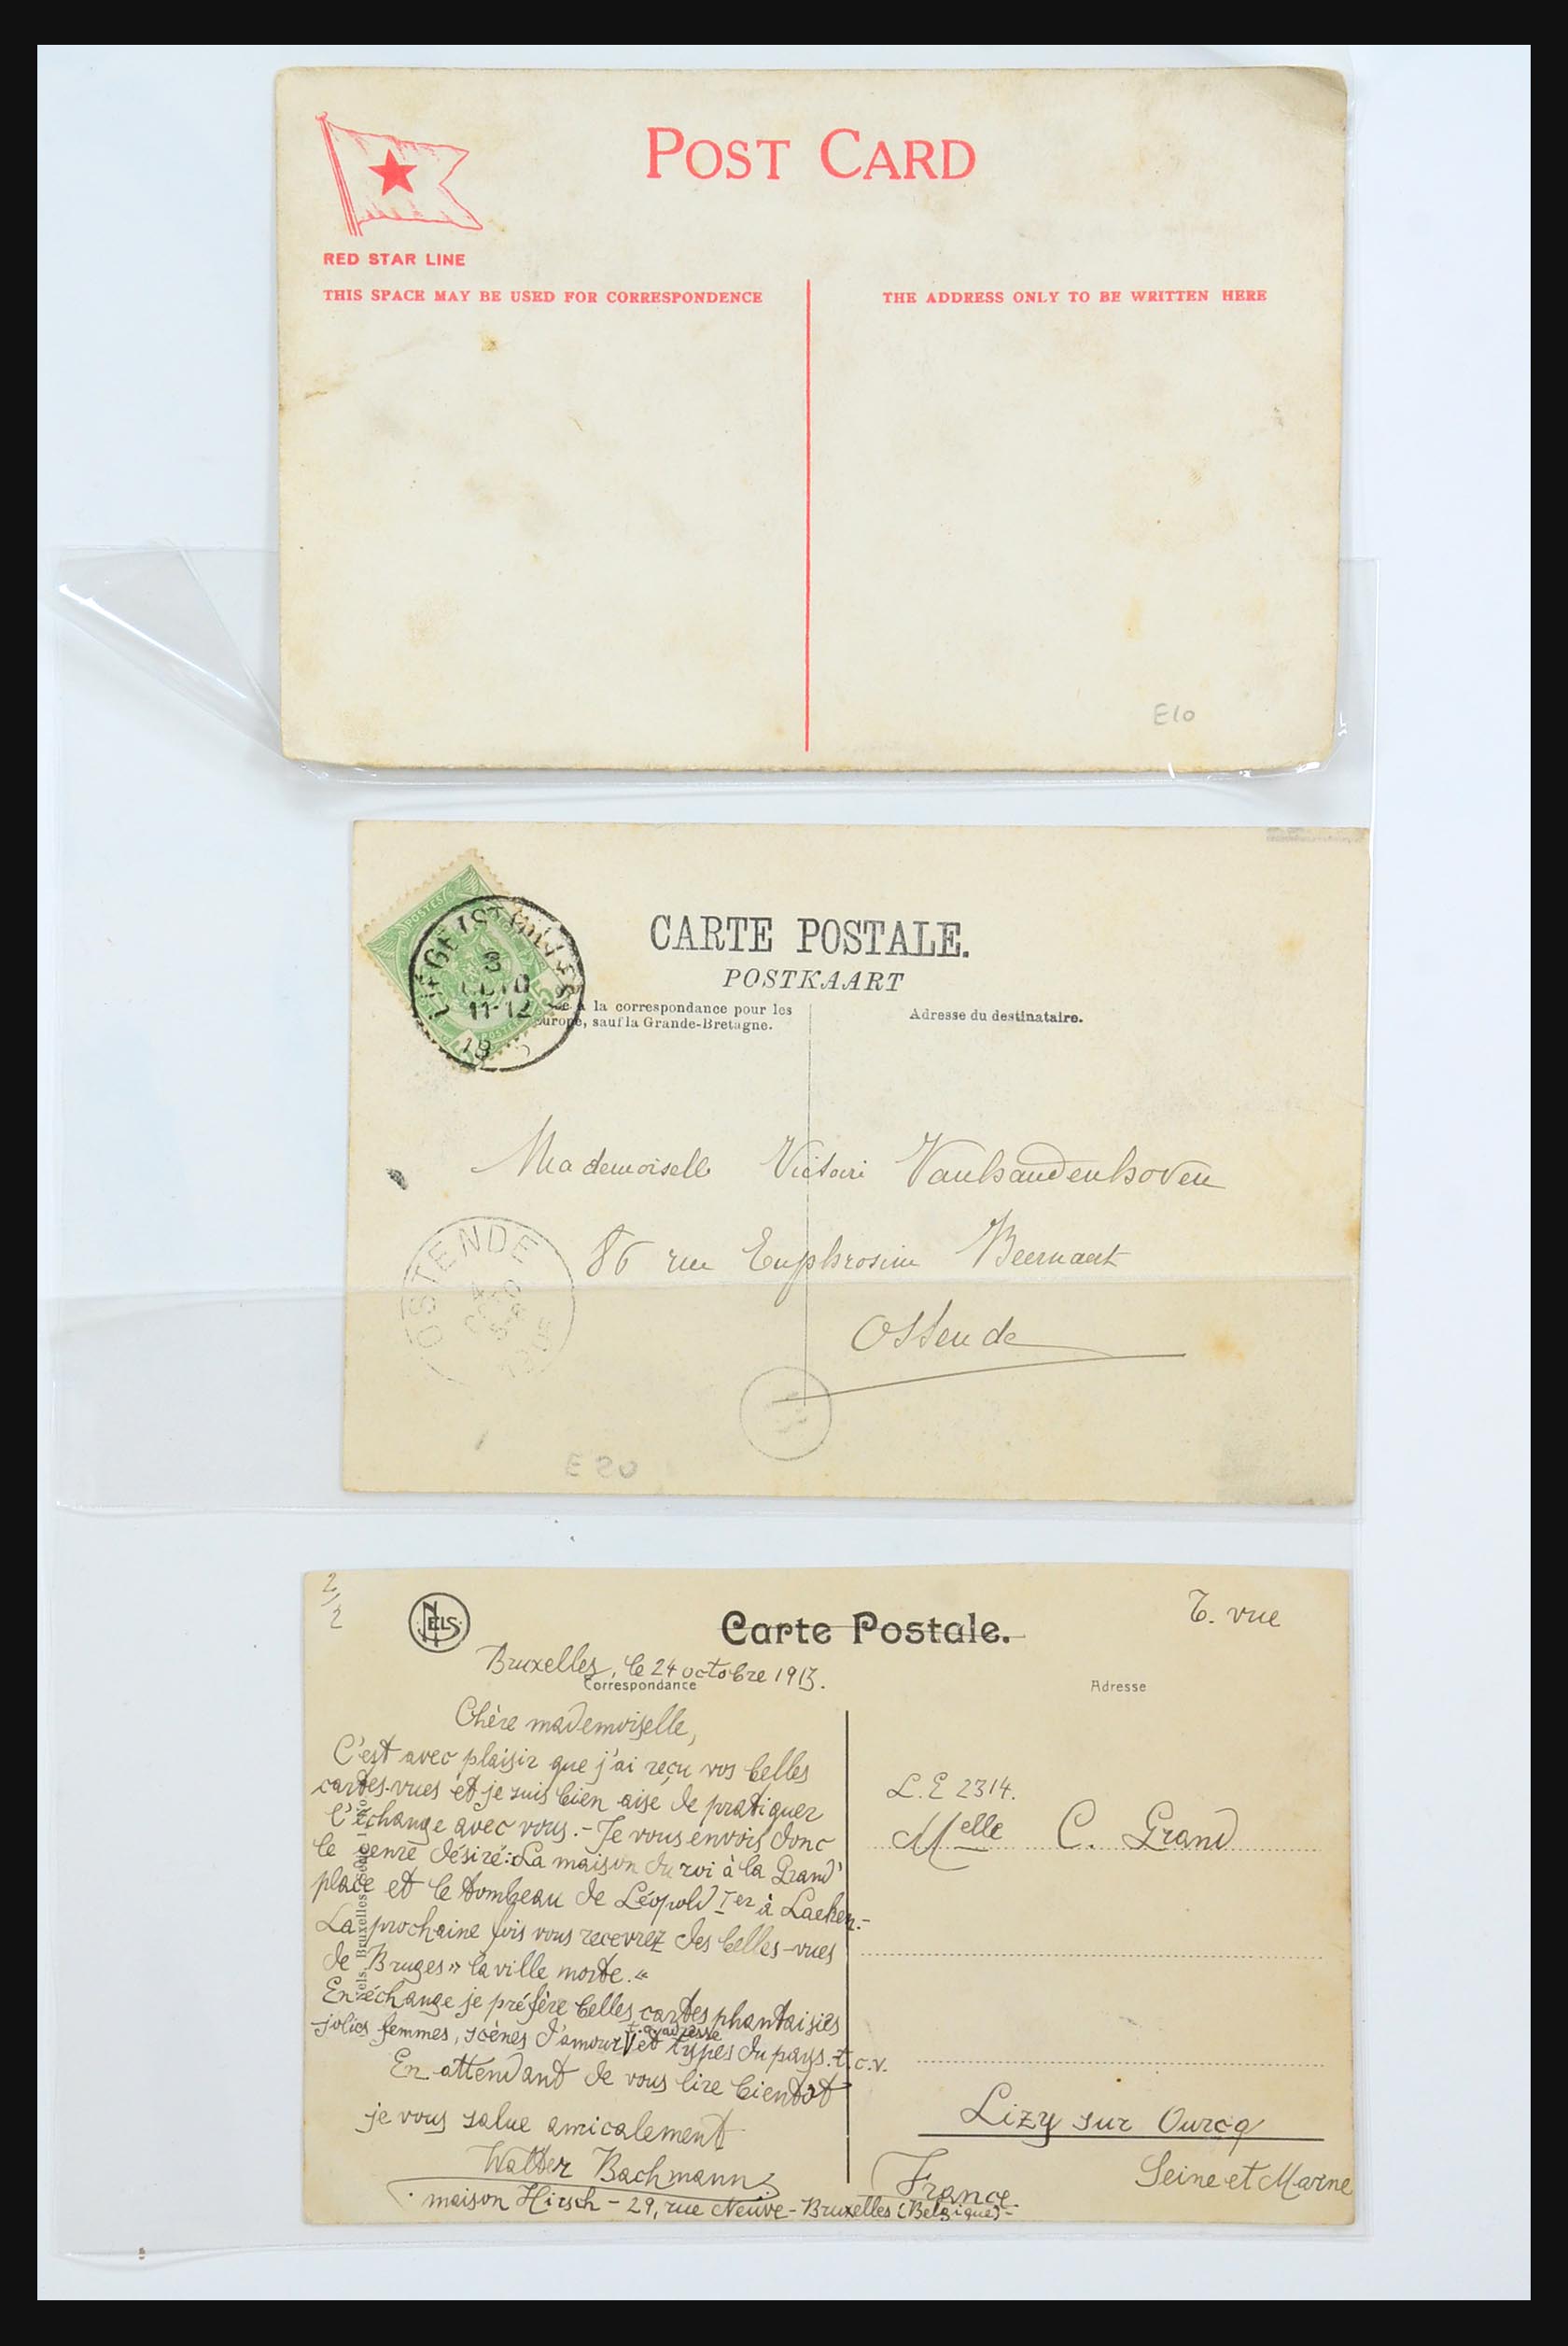 POST CARD
RED STAR LINE
THIS SPACE MAY BE USED FOR CORRESPONDENCE
THE ADDRESS ONLY TO BE WRITTEN HERE
E10
POSTES
3
11-12
CARTE POSTALE.
POSTKAART
à la correspondance pour les
sauf la Grande-Bretagne.
Adresse du destinataire.
Mademoiselle Victoire Vanhaudenhoven
86 rue Euphrosine Beernaert
OSTENDE
Ostende
E 20
2/2
NELS
Carte Postale.
T. vue
Bruxelles, le 24 octobre 1913.
Correspondance
Adresse
Chère mademoiselle,
C'est avec plaisir que j'ai reçu vos belles
cartes-vues et je suis bien aise de pratiquer
l'échange avec vous.- Je vous envois donc
le genre désiré: La maison du roi à la Grand'
place et le tombeau de Léopold Ier à Laeken.-
La prochaine fois vous recevrez des belles-vues
de Bruges » la ville morte. «
En échange je préfère belles cartes phantaisies
jolies femmes, scènes d'amour et types du pays. t.c.v.
En attendant de vous lire bientôt
je vous salue amicalement
Walter Bachmann
maison Hirsch - 29, rue Neuve - Bruxelles (Belgique)-
L.E 2314.
Melle C. Grand
Lizy sur Ourcq
Seine et Marne
France.